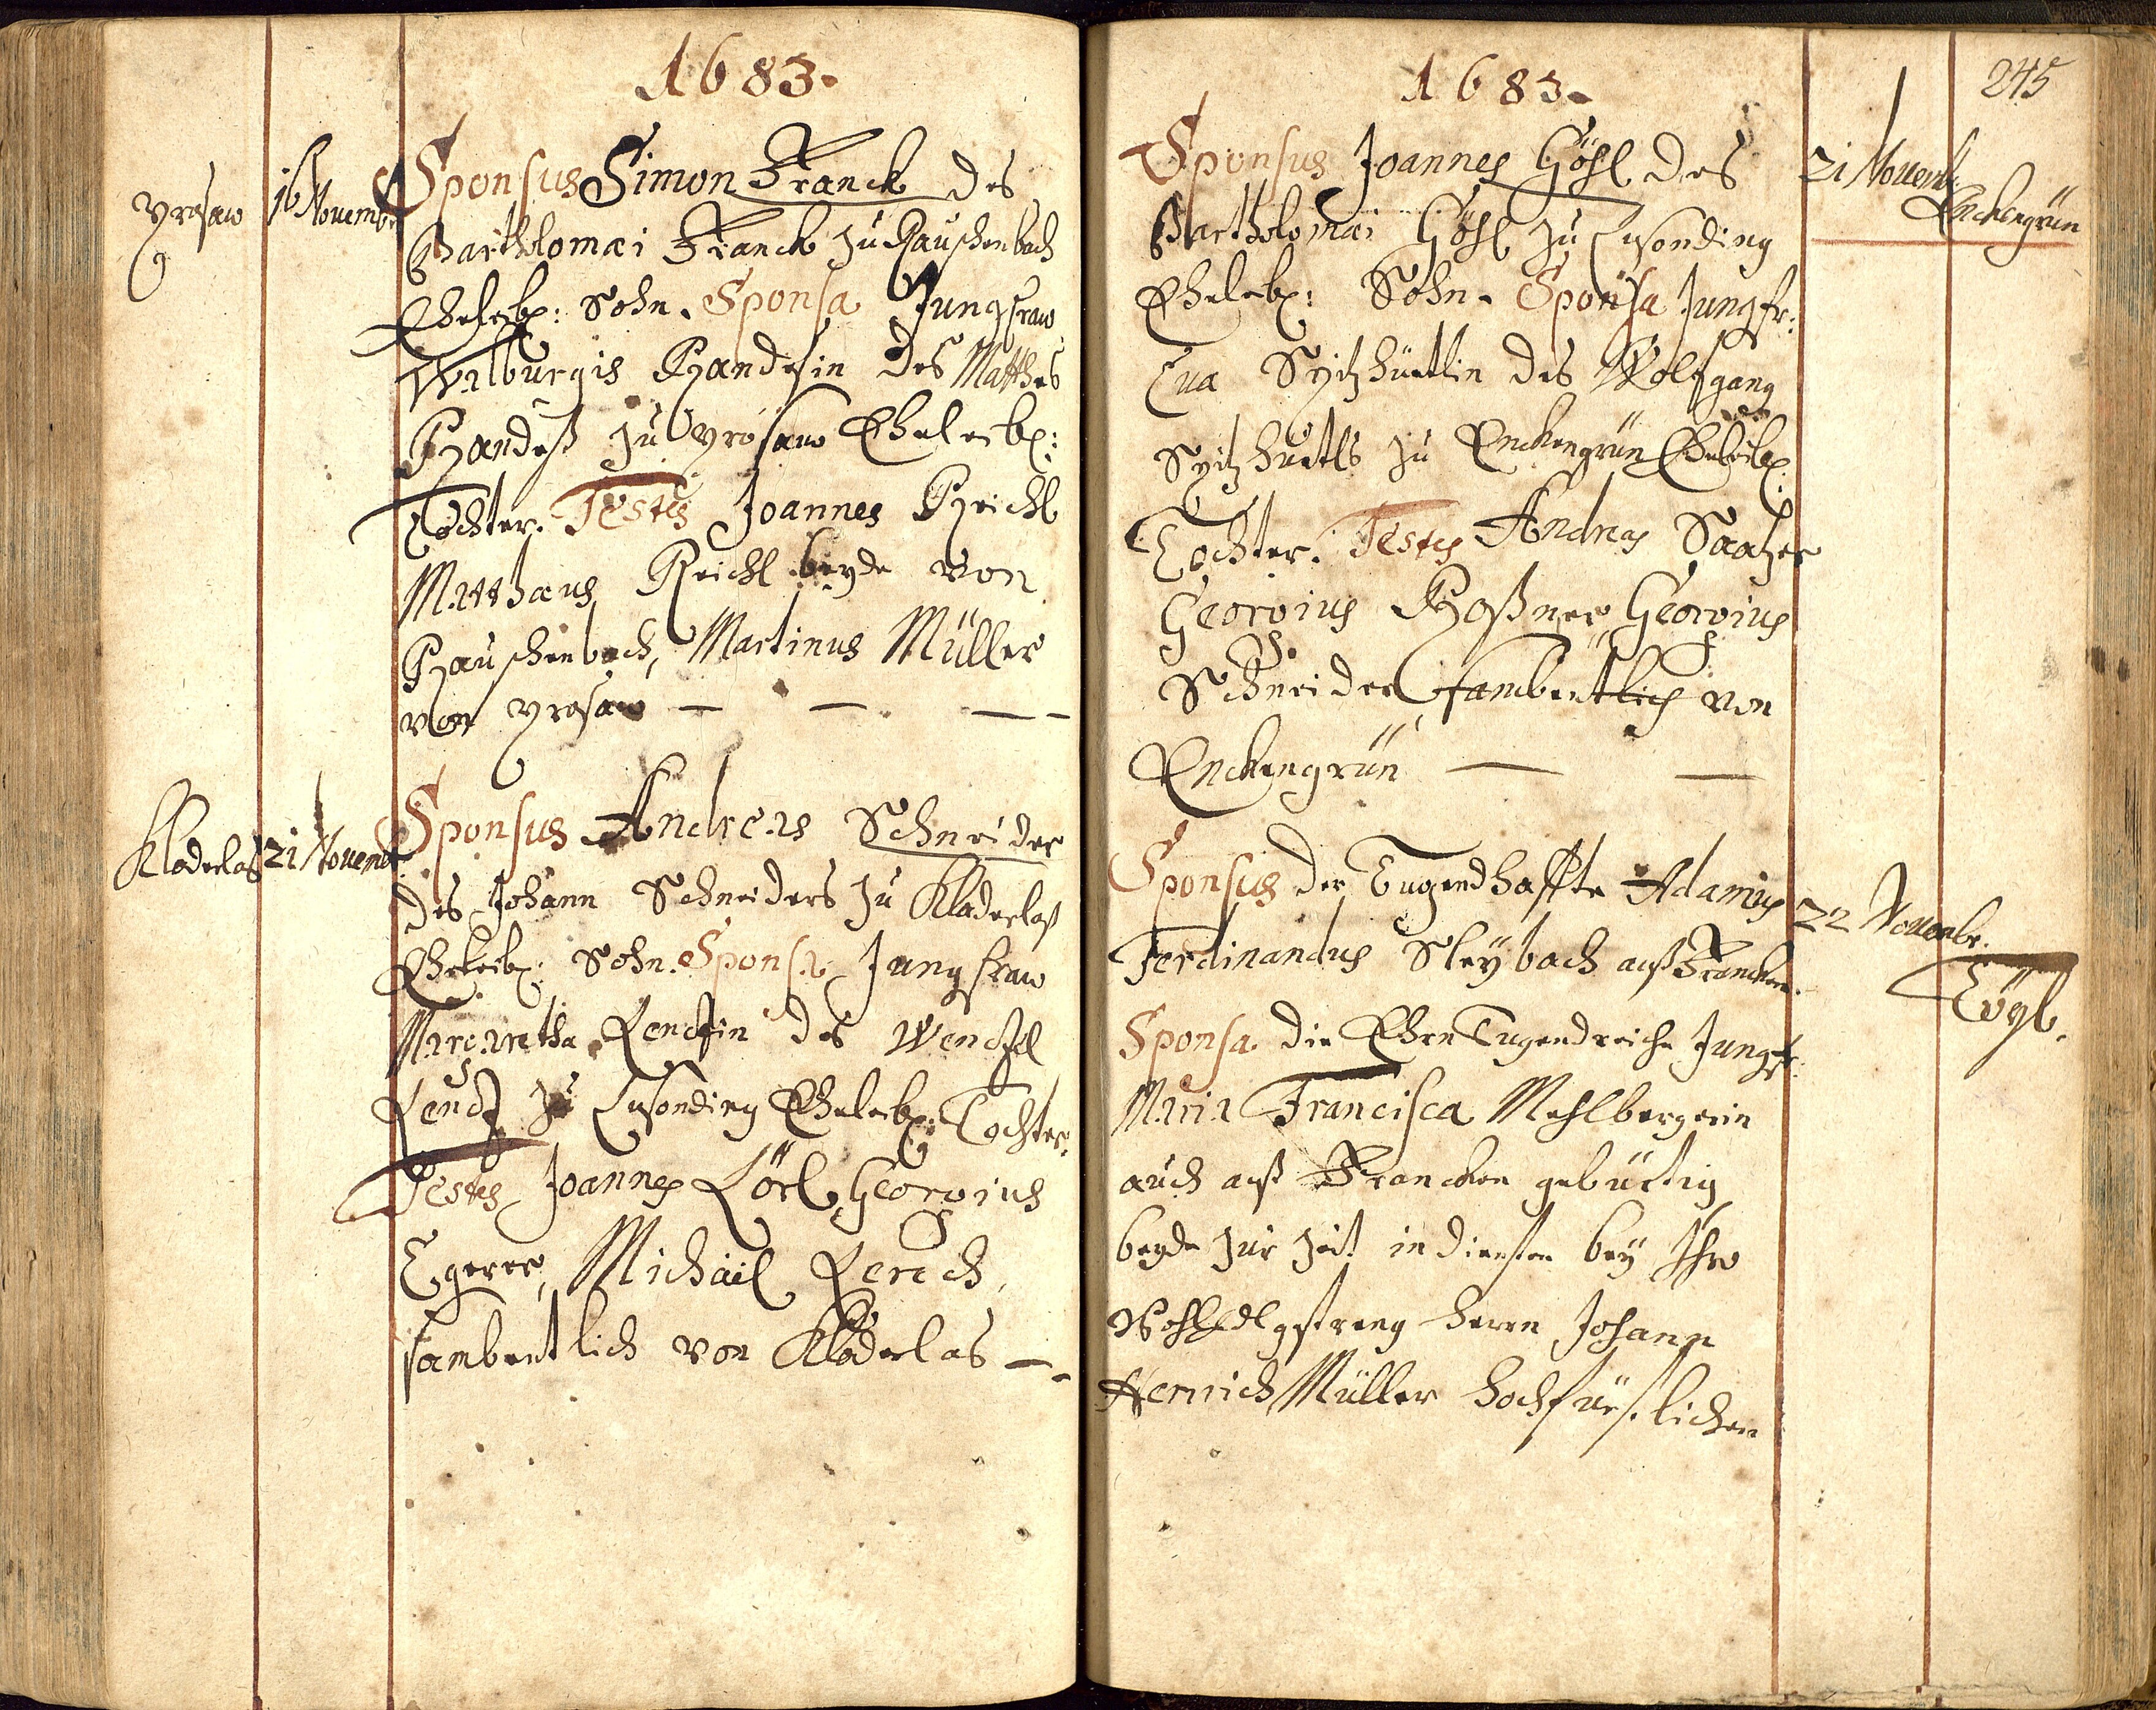 1683.
yrosaw
16 Novembr
Sponsus Simon Franck des
Bartholomæi Franck zu Rauschenbach
Eheleibl: Sohn. Sponsa Jungfraw
Walburgis Randesin des Matthes
Randeß zu yrosaw Eheleibl:
Tochter. Testes Joannes Reichl
Matthæus Reichl beyde von
Rauschenbach, Martinus Müller
von yrosaw — — —
Kladerlas
21 Novemb
Sponsus Andreas Schneider
des Johann Schneiders zu Kladerlaß
Eheleibl: Sohn. Sponsa Jungfraw
Margaretha Lenckin des Wenczel
zu Eheleibl: Tochter.
Testes Joannes Lörl, Georgius
Egerer, Michael Lerch,
sambentlich von Kladerlas —
1683.
245
21 Novemb
Enckengrün
Sponsus Joannes Gößl des
Bartholomæi Gößl zu
Eheleibl: Sohn. Sponsa Jungfr:
Eva Spitzhüetlin des Wolfgang
Spitzhüetls zu Enckengrün Eheleibl:
Tochter. Testes Andreas Saatzer
Georgius Roßner Georgius
Schneider sambentlich von
Enckengrün — —
22 Novembr.
Töpl.
Sponsus der Tugendhaffte Adamus
Ferdinandus Sleybach auß Francken.
Sponsa die Ehrn Tugendreiche Jungfr:
Maria Francisca Mehlbergerin
auch auß Francken gebürtig
beyde zur Zeit in diensten bey Ihro
WohlEdlgstreng herrn Johann
Henrich Müller hochfürstlichen